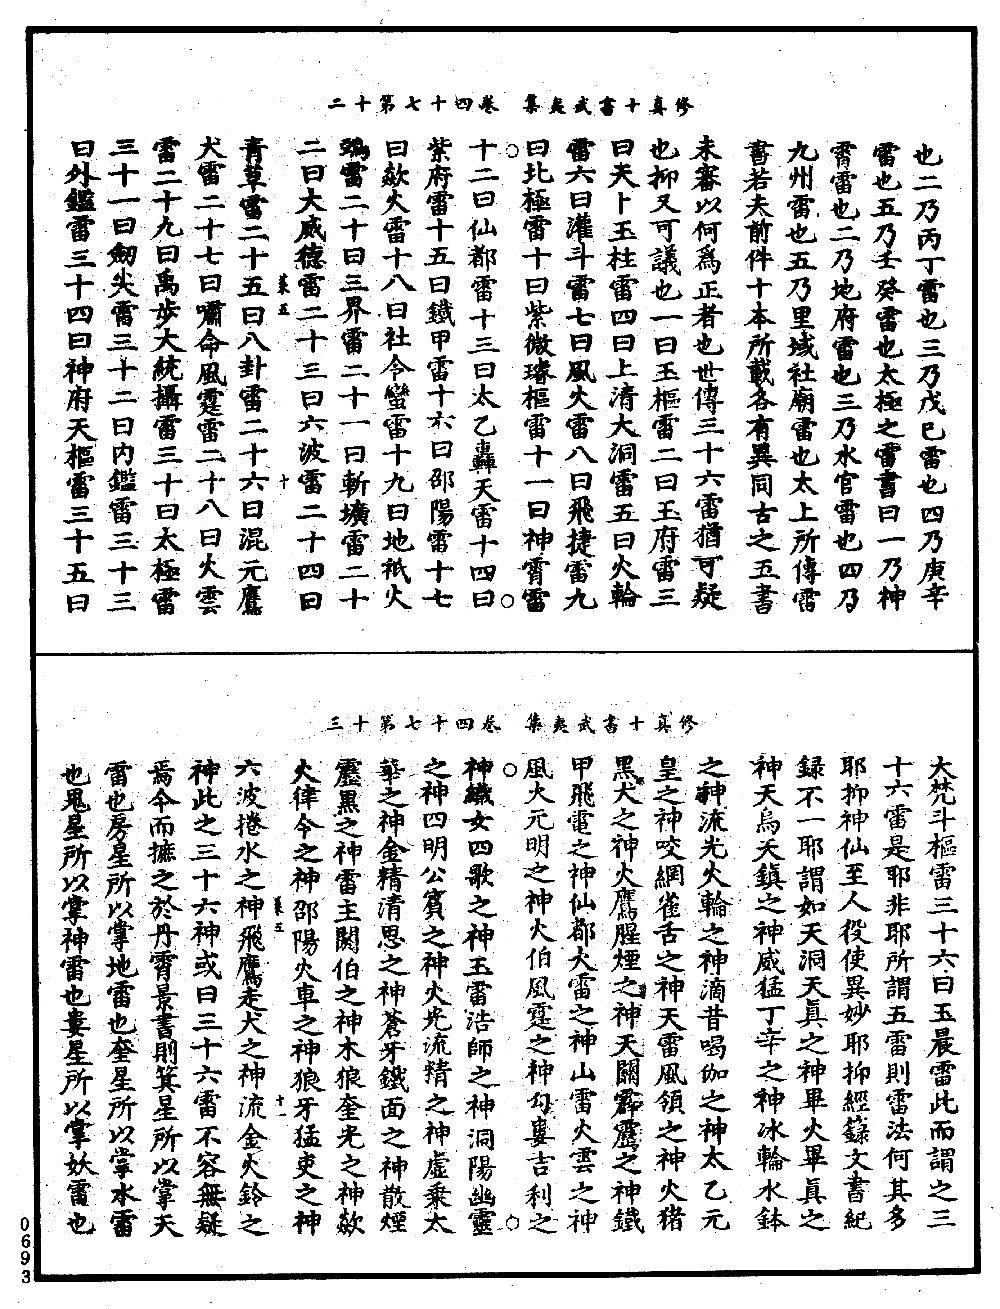 修真十書武夷集　卷四十七第十二
也二乃丙丁雷也三乃戊己雷也四乃庚辛
雷也五乃壬癸雷也太極之雷書曰一乃神
霄雷也二乃地府雷也三乃水官雷也四乃
九州雷也五乃里域社廟雷也太上所傳雷
書若夫前件十本所載各有異同古之五書
未審以何為正者也世傳三十六雷猶可疑
也抑又可議也一曰玉樞雷二曰玉府雷三
曰天卜玉柱雷四曰上清大洞雷五曰火輪
雷六曰灌斗雷七曰風火雷八曰飛捷雷九
曰北極雷十曰紫微璿樞雷十一曰神霄雷
十二曰仙都雷十三曰太乙轟天雷十四曰
紫府雷十五曰鐵甲雷十六曰邵陽雷十七
曰歘火雷十八曰社令蠻雷十九曰地祇火
鴉雷二十曰三界雷二十一曰斬壙雷二十
二曰大威德雷二十三曰六波雷二十四曰
集五　十
青草雷二十五曰八卦雷二十六曰混元鷹
犬雷二十七曰嘯命風霆雷二十八曰火雲
雷二十九曰禹步大統攝雷三十曰太極雷
三十一曰劒尖雷三十二曰內鑑雷三十三
曰外鑑雷三十四曰神府天樞雷三十五曰
修真十書武夷集　卷四十七第十三
大梵斗樞雷三十六曰玉晨雷此而謂之三
十六雷是耶非耶所謂五雷則雷法何其多
耶抑神仙至人役使異妙耶抑經籙文書紀
録不一耶謂如天洞天真之神畢火畢真之
神天烏天鎮之神威猛丁辛之神冰輪水鉢
之神流光火輪之神滴昔喝伽之神太乙元
皇之神咬網雀舌之神天雷風領之神火猪
黑犬之神火鷹腥煙之神天關霹靂之神鐵
甲飛電之神仙都火雷之神山雷火雲之神
風火元明之神火伯風霆之神勾婁吉利之
神織女四歌之神玉雷浩師之神洞陽幽靈
之神四明公賓之神火光流精之神虛乘太
華之神金精清思之神蒼牙鐵面之神散煙
靂黑之神雷主闕伯之神木狼奎光之神歘
火律令之神邵陽火車之神狼牙猛吏之神
集五　十一
六波捲水之神飛鷹走犬之神流金火鈴之
神此之三十六神或曰三十六雷不容無疑
焉今而摭之於丹霄景書則箕星所以掌天
雷也房星所以掌地雷也奎星所以掌水雷
也鬼星所以掌神雷也婁星所以掌妖雷也
0693